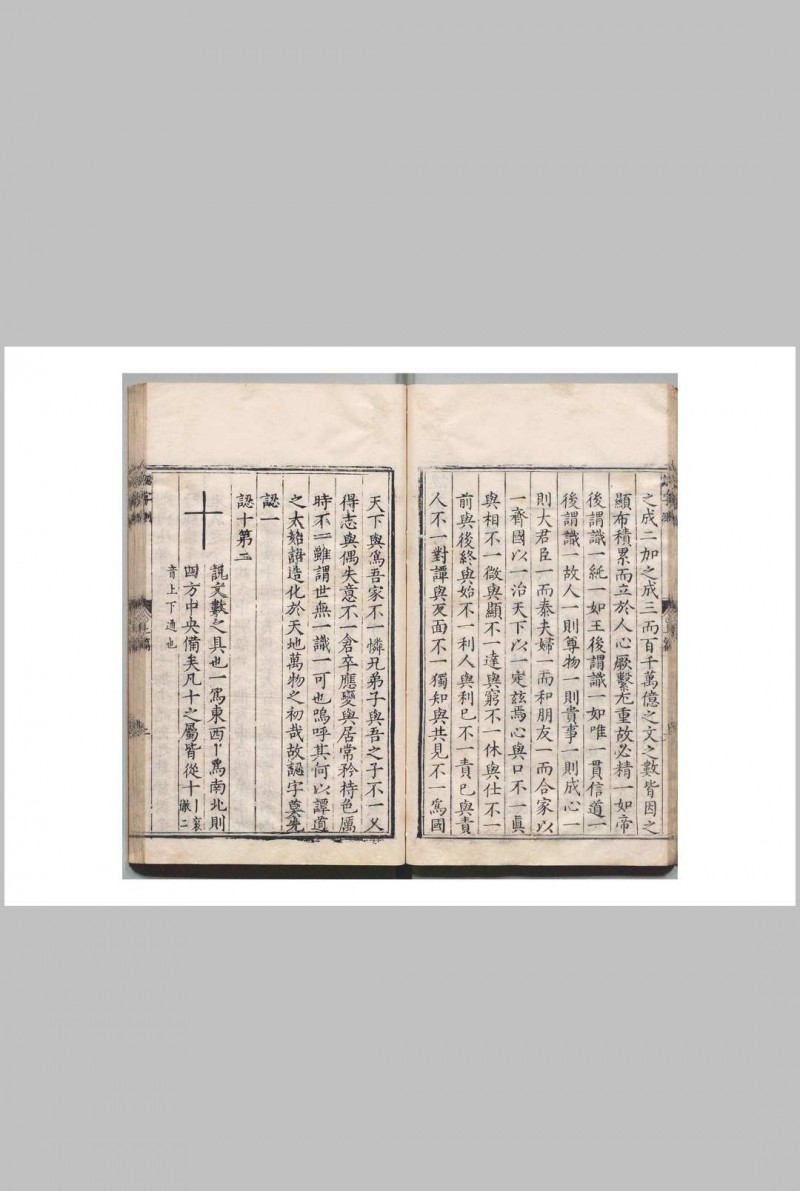 之成二加之成三而百千萬億之文之數皆因之
顯布積累而立於人心厥繫尤重故必精一如帝
後謂識一純一如王後謂識一如唯一貫信道一
後謂識一故人一則尊物一則貴事一則成心一
則大君臣一而泰夫婦一而和朋友一而合家以
一齊國以一治天下以一定玆焉心與口不一眞
與相不一微與顯不一達與窮不一休與仕不一
前與後終與始不一利人與利已不一責已與責
人不一對譚與反面不一獨知與共見不一爲國
天下與爲吾家不一憐兄弟子與吾之子不一又
得志與偶失意不一倉卒應變與居常矜持色厲
時不一一雖謂世無一識一可也嗚呼其何以譚道
之太始語造化於天地萬物之初哉故認字莫先
認一
認十第二
十
說文數之具也一爲東西丨爲南北則
四方中央備矣凡十之屬皆從十丨袞
二
音上下通也